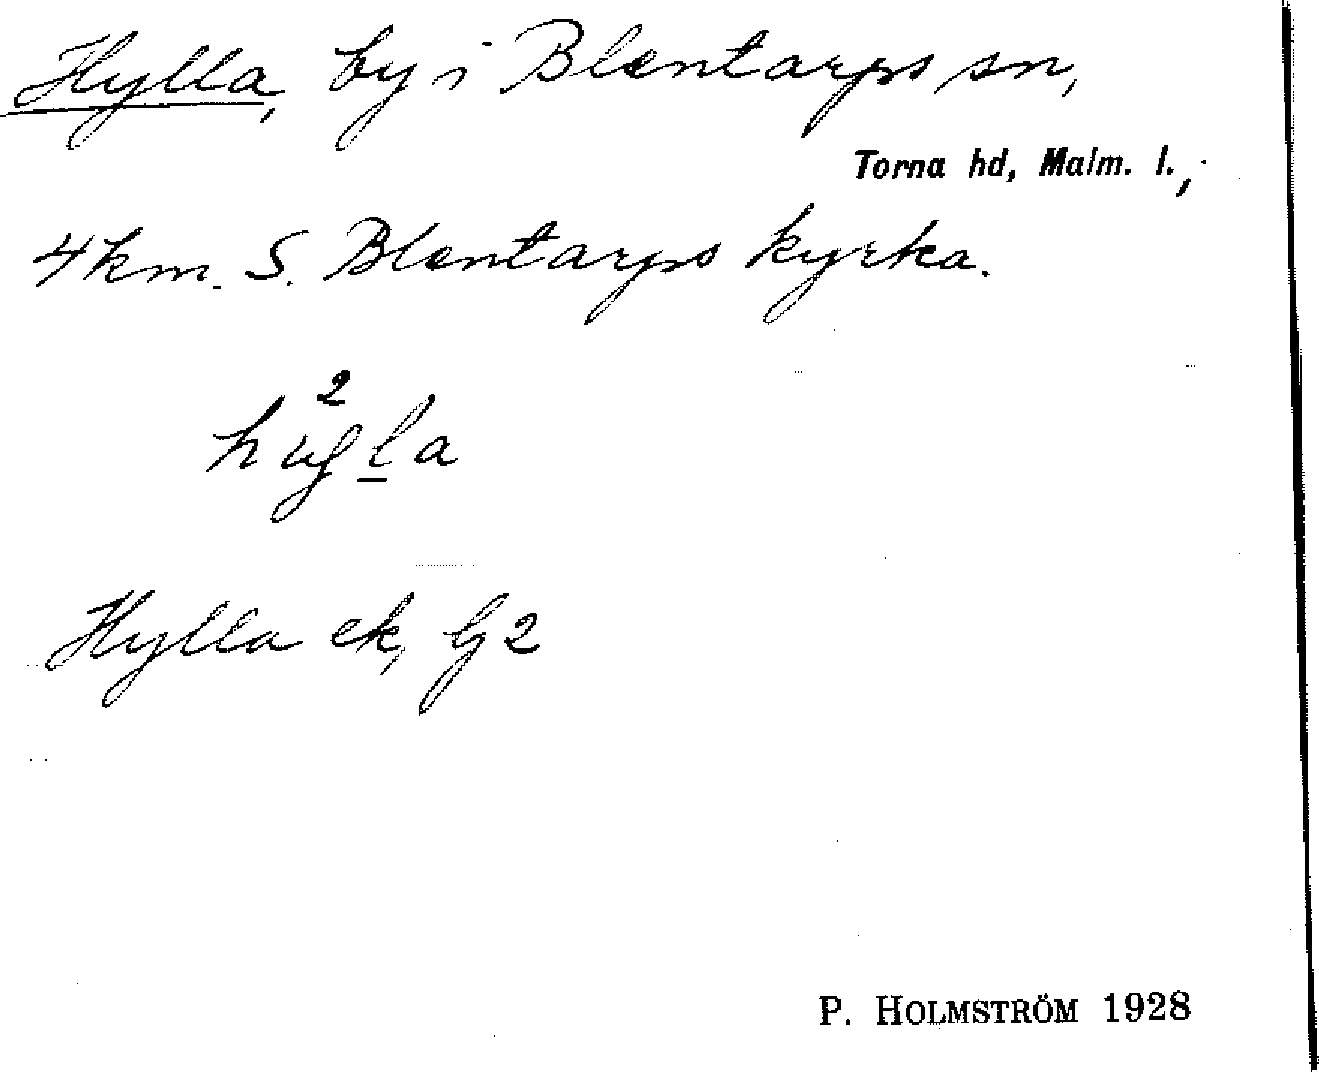 Hylla, by i Blentarps sn,
Torna hd, Malm. l.,
4 km. S. Blentarps kyrka.
Hylla ek, bj 2
P. HOLMSTRÖM 1928